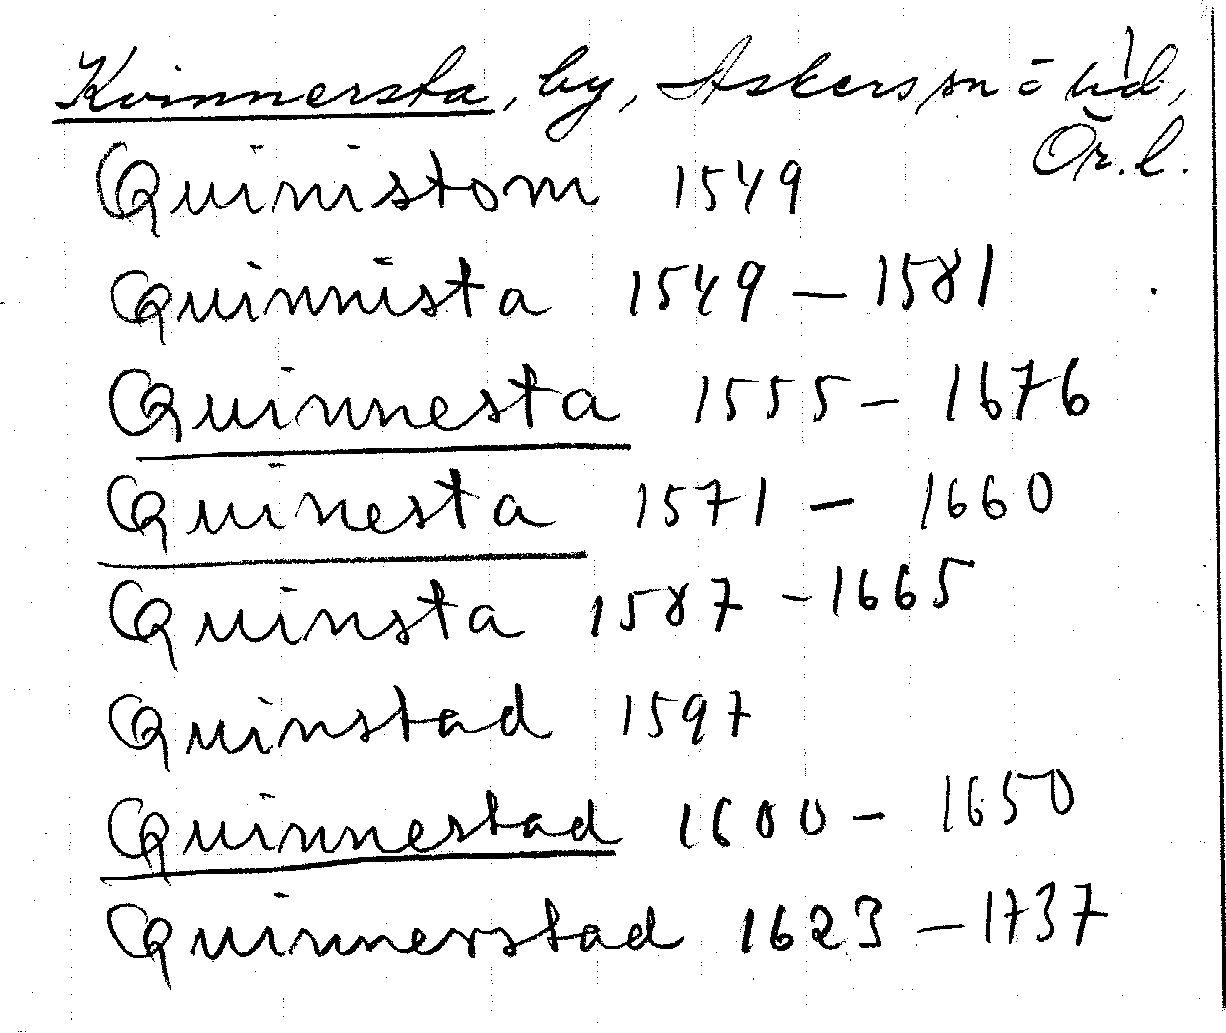 Kvinnersta, by, Askers sn o hd,
Ör. l.
Quinistom 1549
Quinnista 1549 – 1581
Quinnesta 1555 – 1676
Quinesta 1571 – 1660
Quinsta 1587 – 1665
Quinstad 1597
Quinnestad 1600 – 1650
Quinnerstad 1623 – 1737